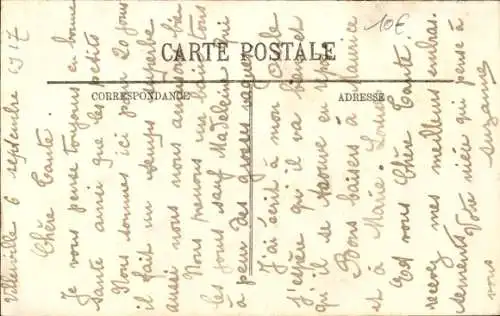 10€
CARTE POSTALE
CORRESPONDANCE
ADRESSE
Villerville 6 septembre 1917
Chère Tante.
Je vous pense toujours en bonne
santé ainsi que les petits
Nous sommes ici pour 20 jours
il fait un temps superbe
aussi nous nous amusons bien
Nous prenons un bain tous
les jours sauf Madeleine qui
a peur des grosses vagues
J'ai écrit à mon Oncle
j'espère qu'il va bien et
qu'il se trouve en repos
Bons baisers à Maurice
et à Marie-Louise
Et vous Chère Tante.
recevez mes meilleurs embras.
sements. Votre nièce qui pense à
vous Suzanne